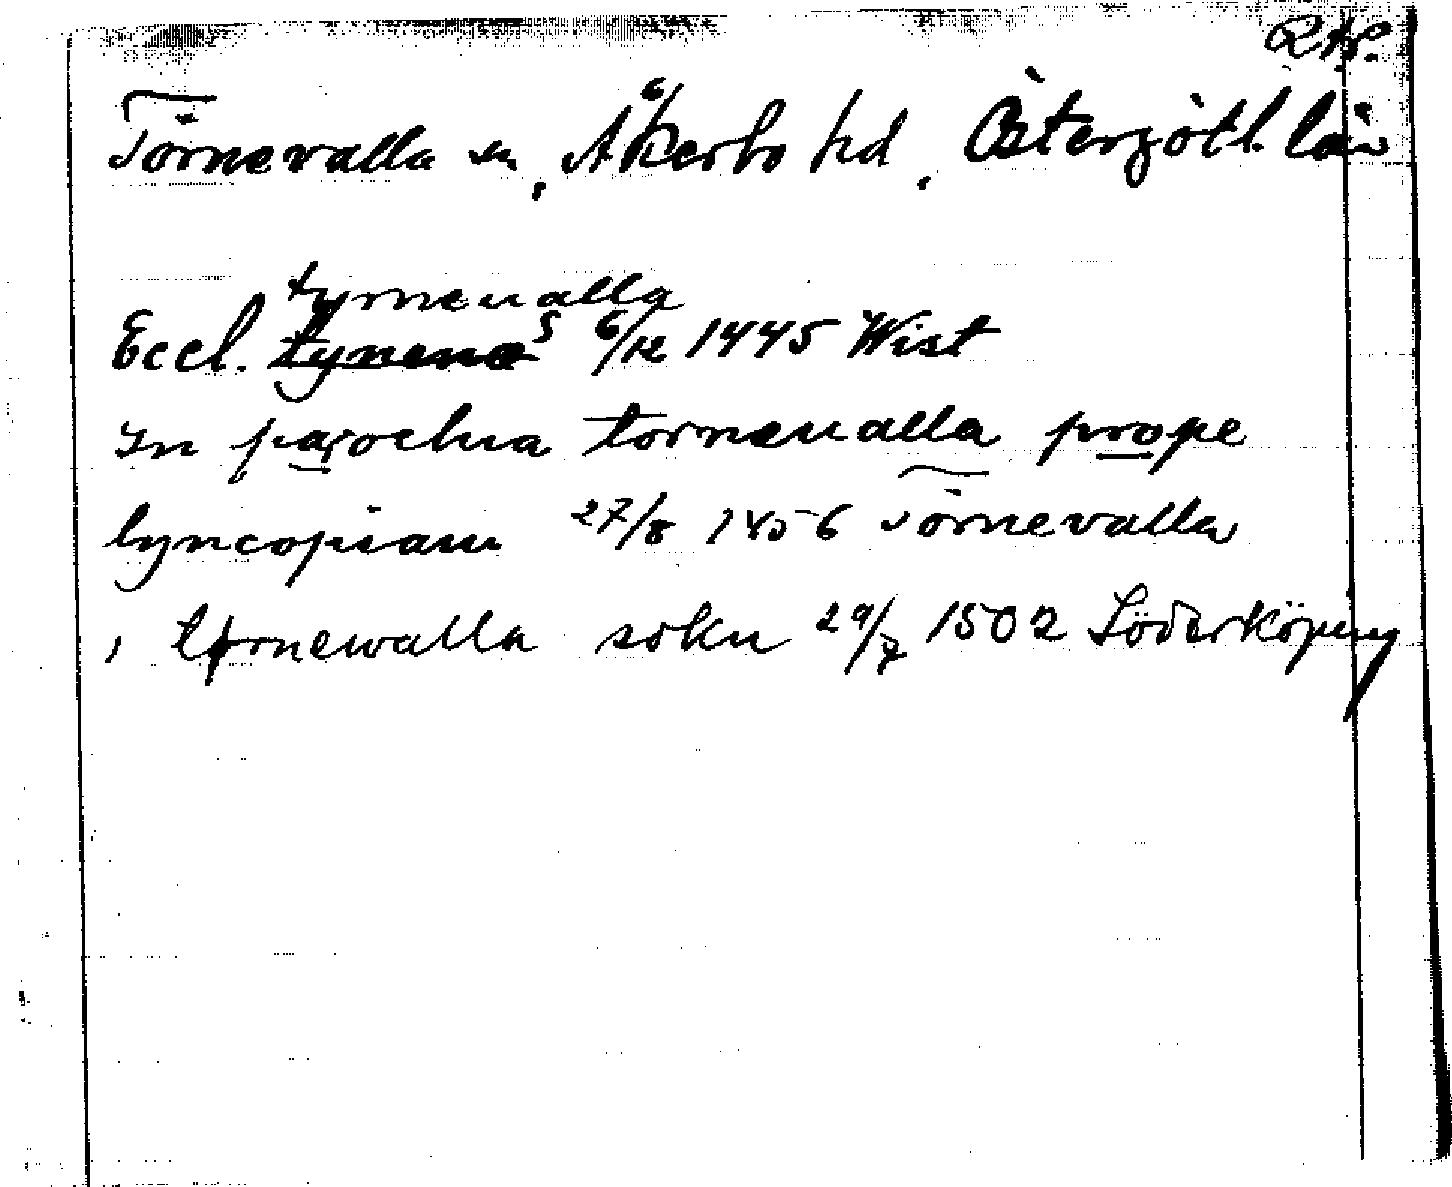 RAP.
Törnevalla sn, Åkerbo hd, Östergötl. län
tyrneualla
Eccl. tyrenæ 6/12 1445 Wist
In parochia torneualla prope
lyncopiam 27/8 1456 Törnevalla
i tørnewalla sokn 29/7 1502 Söderköping